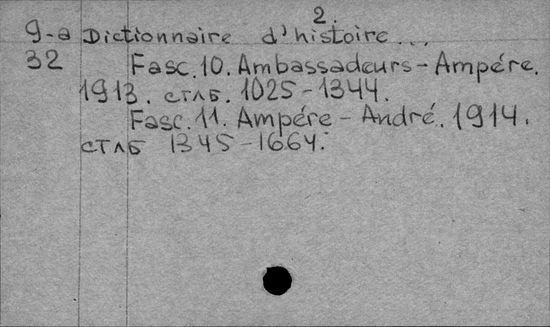 2.
9-a Dictionnaire d'histoire...
32 Fasc. 10. Ambassadeurs-Ampére.
1913. стлб. 1025-1344.
Fasc. 11. Ampére - André. 1914.
стлб 1345-1664.